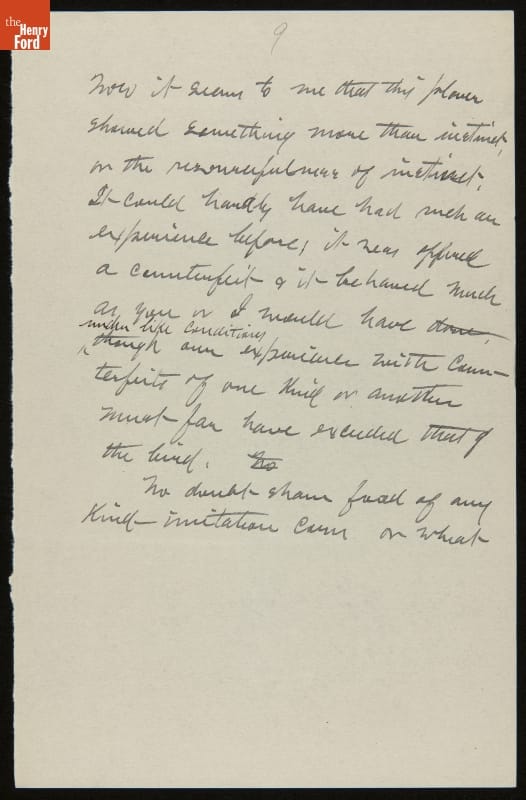 the
Henry
Ford
9
Now it seems to me that this plover
showed something more than instinct,
or the resourcefulness of instinct.
It could hardly have had such an
experience before; it was offered
a counterfeit & it behaved much
as you or I would have done,
under like conditions
though our experience with coun-
terfeits of one kind or another
must far have exceeded that of
the bird. No
No doubt sham food of any
kind - imitation corn or wheat